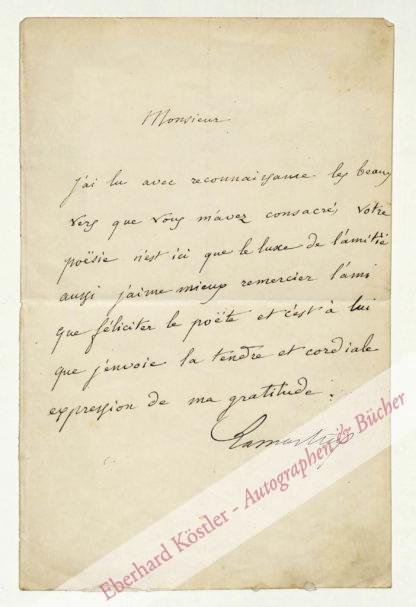 Monsieur
j'ai lu avec reconnaissance les beaux
vers que vous m'avez consacrés, votre
poësie n'est ici que le luxe de l'amitié
aussi j'aime mieux remercier l'ami
que féliciter le poëte et c'est à lui
que j'envoie la tendre et cordiale
expression de ma gratitude.
Lamartine
Eberhard Köstler - Autographen & Bücher